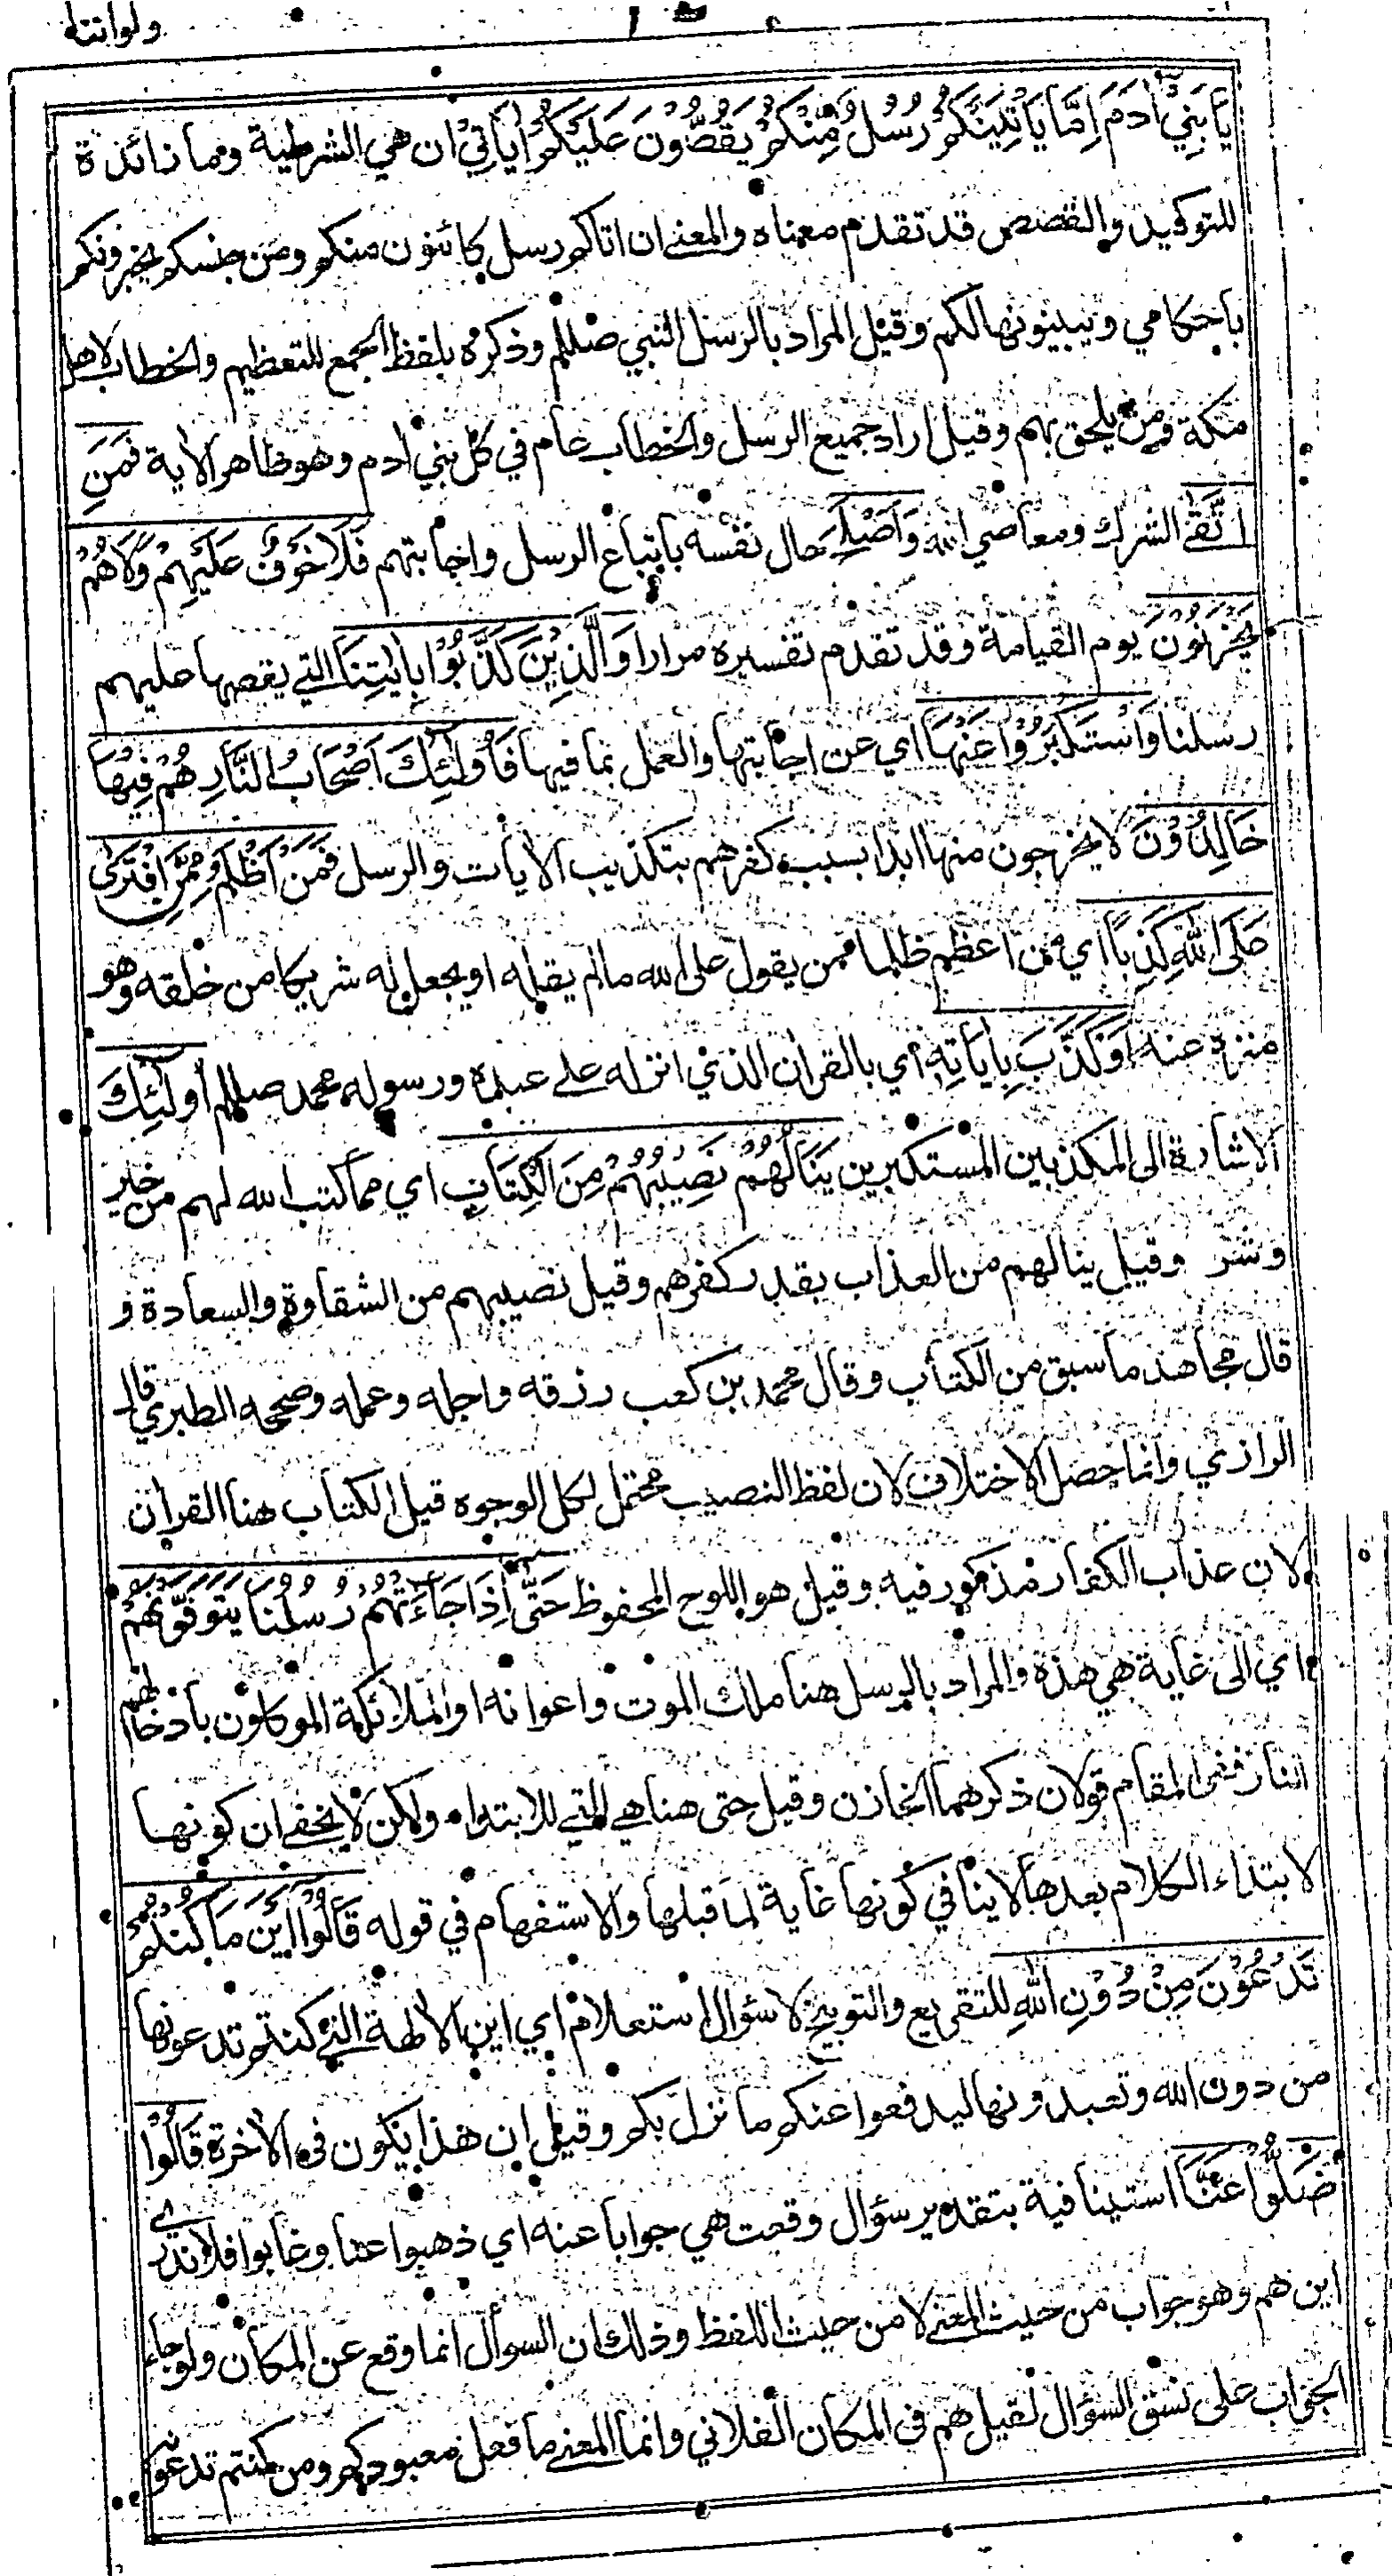 ولواننا
يَا بَنِيْ اٰدَمَ اِمَّا يَأْتِيَنَّكُمْ رُسُلٌ مِّنْكُمْ يَقُصُّوْنَ عَلَيْكُمْ اٰيَاتِيْ ان هي الشرطية وما زائدة
للتوكيد والقصص قد تقدم معناه والمعنى ان اتاكم رسل كائنون منكم ومن جنسكم يخبرونكم
باحكامي ويبينونها لكم وقيل المراد بالرسل النبي صللم وذكره بلفظ الجمع للتعظيم والخطاب لاهل
مكة ومن يلحق بهم وقيل اراد جميع الرسل والخطاب عام في كل بني ادم وهو ظاهر الاية فَمَنِ
اتَّقٰى الشرك ومعاصي الله وَاَصْلَحَ حال نفسه باتباع الرسل واجابتهم فَلَا خَوْفٌ عَلَيْهِمْ وَلَا هُمْ
يَحْزَنُوْنَ يوم القيامة وقد تقدم تفسيره مرارا وَالَّذِيْنَ كَذَّبُوْا بِاٰيٰتِنَا التي يقصها عليهم
رسلنا وَاسْتَكْبَرُوْا عَنْهَا اي عن اجابتها والعمل بما فيها فَاُولٰٓئِكَ اَصْحَابُ النَّارِ هُمْ فِيْهَا
خَالِدُوْنَ لا يخرجون منها ابدا بسبب كفرهم بتكذيب الايات والرسل فَمَنْ اَظْلَمُ مِمَّنِ افْتَرٰى
عَلَى اللّٰهِ كَذِبًا اي من اعظم ظلما ممن يقول على الله مالم يقله او يجعل له شريكا من خلقه وهو
منزه عنه اَوْ كَذَّبَ بِاٰيَاتِهٖ اي بالقران الذي انزله على عبده ورسوله محمد صللم اُولٰٓئِكَ
الاشارة الى المكذبين المستكبرين يَنَالُهُمْ نَصِيْبُهُمْ مِنَ الْكِتَابِ اي مما كتب الله لهم من خير
وشر وقيل ينالهم من العذاب بقدر كفرهم وقيل نصيبهم من الشقاوة والسعادة و
قال مجاهد ما سبق من الكتاب وقال محمد بن كعب رزقه واجله وعمله وصححه الطبري قال
الرازي وانما حصل الاختلاف لان لفظ النصيب محتمل لكل الوجوه قيل الكتاب هنا القران
لان عذاب الكفار مذكور فيه وقيل هو اللوح المحفوظ حَتّٰى اِذَا جَاءَتْهُمْ رُسُلُنَا يَتَوَفَّوْنَهُمْ
اي الى غاية هي هذه والمراد بالرسل هنا ملك الموت واعوانه او الملائكة الموكلون بادخالهم
النار ففي المقام قولان ذكرهما الخازن وقيل حتى هنا هي التي للابتداء ولكن لا يخفى ان كونها
لابتداء الكلام بعدها لا ينافي كونها غاية لما قبلها والاستفهام في قوله قَالُوْا اَيْنَ مَا كُنْتُمْ
تَدْعُوْنَ مِنْ دُوْنِ اللّٰهِ للتقريع والتوبيخ لا سؤال استعلام اي اين الالهة التي كنتم تدعونها
من دون الله وتعبدونها ليدفعوا عنكم ما نزل بكم وقيل ان هذا يكون في الاخرة قَالُوْا
ضَلُّوْا عَنَّا استينافية بتقدير سؤال وقعت هي جوابا عنه اي ذهبوا عنا وغابوا فلا ندري
اين هم وهو جواب من حيث المعنى لا من حيث اللفظ وذلك ان السوأل انما وقع عن المكان ولو جاء
الجواب على نسق السؤال لقيل هم في المكان الفلاني وانما المعنى ما فعل معبودكم ومن كنتم تدعونه